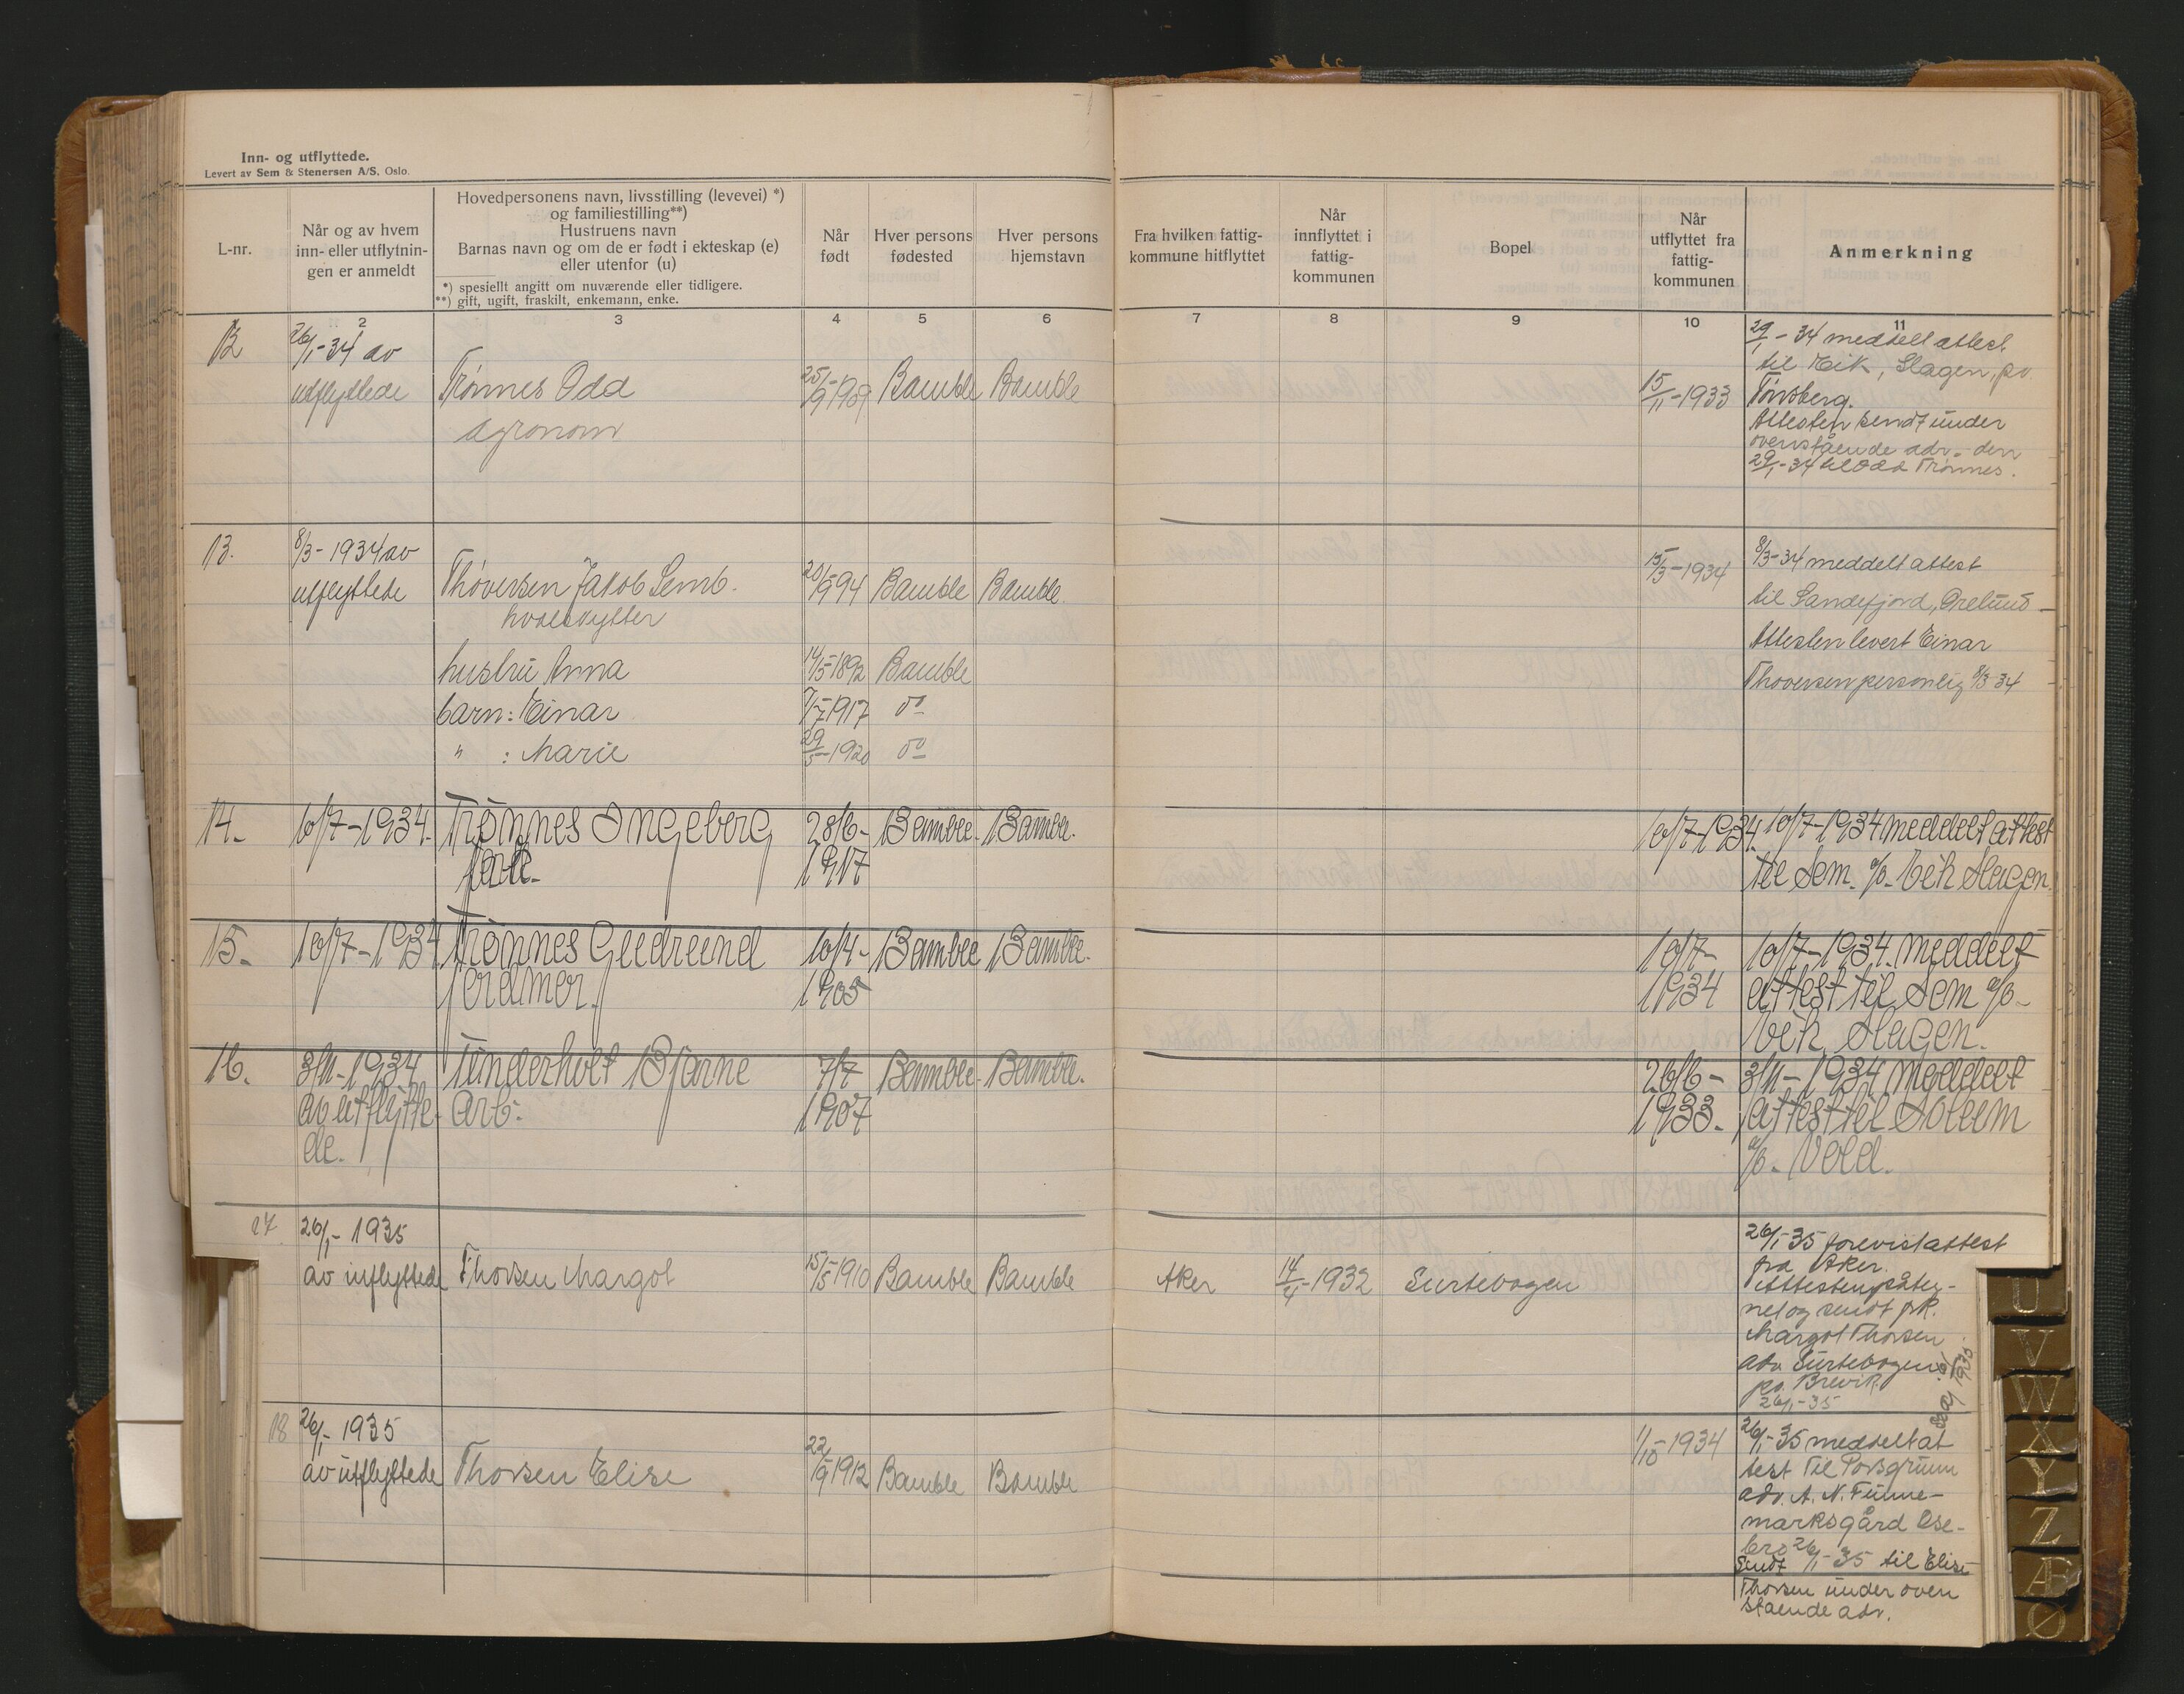 Inn- og utflyttede.
Levert av Sem & Stenersen A/S, Oslo.
L-nr.
Når og av hvem
inn- eller utflytnin-
gen er anmeldt
Hovedpersonens navn, livsstilling (levevei) *)
og familiestilling**)
Hustruens navn
Barnas navn og om de er født i ekteskap (e)
eller utenfor (u)
*) spesiellt angitt om nuværende eller tidligere.
**) gift, ugift, fraskilt, enkemann, enke.
Når
født
Hver persons
fødested
Hver persons
hjemstavn
Fra hvilken fattig-
kommune hitflyttet
Når
innflyttet i
fattig-
kommunen
Bopel
Når
utflyttet fra
fattig-
kommunen
Anmerkning
2 3 4 5 6 7 8 9 10 11
12 26/1-34 av
utflyttede Trønnes Odd 25/9-1909 Bamble Bamble 15/11-1933
agronom
29/1-34 meddelt attest
til Eik, Slagen, po
Tønsberg.
Attesten sendt under
ovenstående adr. den
29/1-34 til Odd Trønnes.
13. 8/3-1934 av
utflyttede Thøversen Jakob Semb. 20/9-94 Bamble Bamble. 15/3-1934
hvalskytter
hustru Anna 14/5-1892 Bamble
barn: Einar 7/7-1917 do
" : Marie 29/5-1920 do
8/3-34 meddelt attest
til Sandefjord,
Attesten levert Einar
Thoversen personlig 8/3 34
14. 10/7-1934. Trønnes Ingeberg 28/6- Bamble. Bamble. 10/7-1934. 10/7-1934 meddelt attest
1917 til Sem. a/b. Eik Slagen.
15. 10/7-1934 Trønnes Gudrund 10/4- Bamble Bamble. 10/7- 10/7-1934. meddelt
jordmor. 1905 1934 attest til Sem a/b-
Eik Slagen.
16. 3/11-1934 Tunderholt Bjarne 7/7 Bamble- Bamble. 26/6- 3/11-1934 meddelt
av utflytte- Arb. 1907 1933. attest til Solum
de. a/b. Vold.
17 26/1-1935
av inflyttede Thorsen Margot 15/5 1910 Bamble Bamble Aker 14/4-1932 Surtebogen
26/1-35 forevist attest
fra Aker.
Attesten påteg-
net og sendt frk.
Margot Thorsen
adr. Surtebogen
po. Brevik
26/1-35
18 26/1-1935
av utflyttede Thorsen Elise 22/9 1912 Bamble Bamble 1/10-1934
26/1-35 meddelt at
test til Porsgrunn
adr. A. N. Fume-
marksgård Ose-
bro 26/1-35
Sendt til Elise
Thorsen under oven
stående adr.
U
V
W
X
Y
Z
Æ
Ø